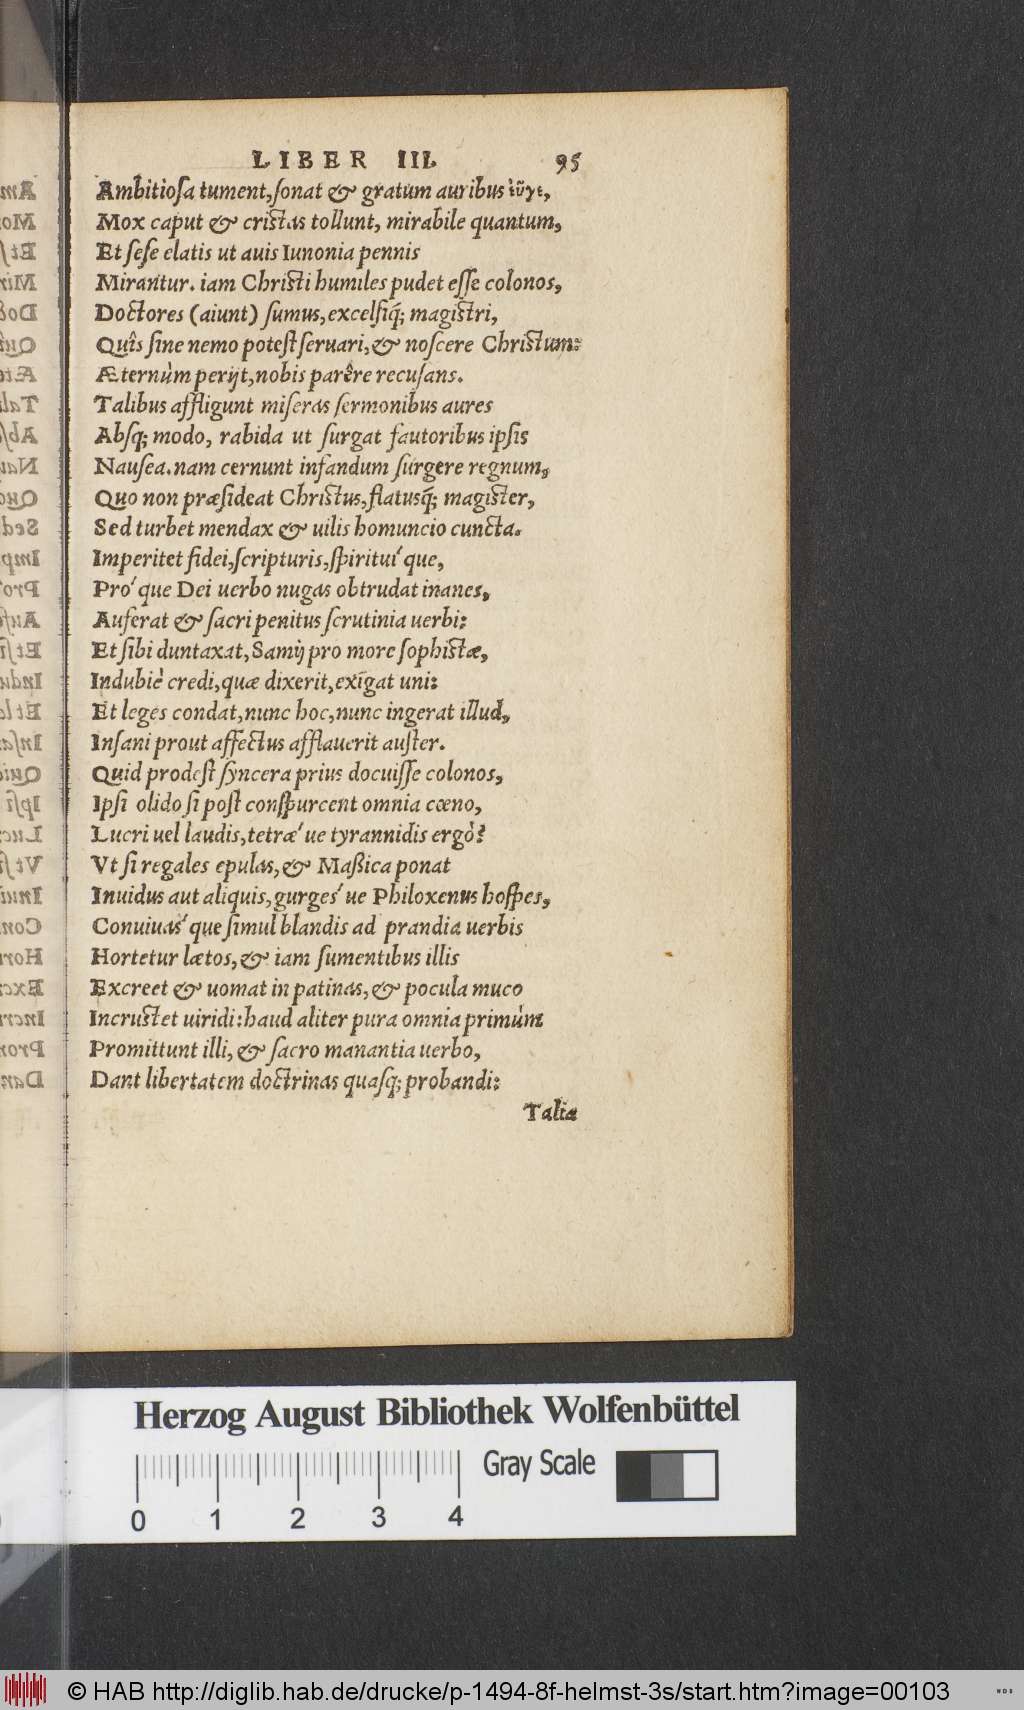 LIBER III. 95
Ambitiosa tument, sonat & gratum auribus εὖγε,
Mox caput & cristas tollunt, mirabile quantum,
Et sese elatis ut auis Iunonia pennis
Mirantur. iam Christi humiles pudet esse colonos,
Doctores (aiunt) sumus, excelsiq́; magistri,
Quîs sine nemo potest seruari, & noscere Christum:
Æternùm perijt, nobis parêre recusans.
Talibus affligunt miseras sermonibus aures
Absq; modo, rabida ut surgat fautoribus ipsis
Nausea. nam cernunt infandum surgere regnum,
Quo non præsideat Christus, flatusq́; magister,
Sed turbet mendax & uilis homuncio cuncta.
Imperitet fidei, scripturis, spirituí que,
Pró que Dei uerbo nugas obtrudat inanes,
Auferat & sacri penitus scrutinia uerbi:
Et sibi duntaxat, Samij pro more sophistæ,
Indubiè credi, quæ dixerit, exigat uni:
Et leges condat, nunc hoc, nunc ingerat illud,
Insani prout affectus afflauerit auster.
Quid prodest syncera prius docuisse colonos,
Ipsi olido si post conspurcent omnia cœno,
Lucri uel laudis, tetrǽ ue tyrannidis ergò?
Vt si regales epulas, & Maßica ponat
Inuidus aut aliquis, gurgeś ue Philoxenus hospes,
Conuiuaś que simul blandis ad prandia uerbis
Hortetur lætos, & iam sumentibus illis
Excreet & uomat in patinas, & pocula muco
Incrustet uiridi: haud aliter pura omnia primùm
Promittunt illi, & sacro manantia uerbo,
Dant libertatem doctrinas quasq; probandi:
Talia
Herzog August Bibliothek Wolfenbüttel
Gray Scale
0 1 2 3 4
© HAB http://diglib.hab.de/drucke/p-1494-8f-helmst-3s/start.htm?image=00103